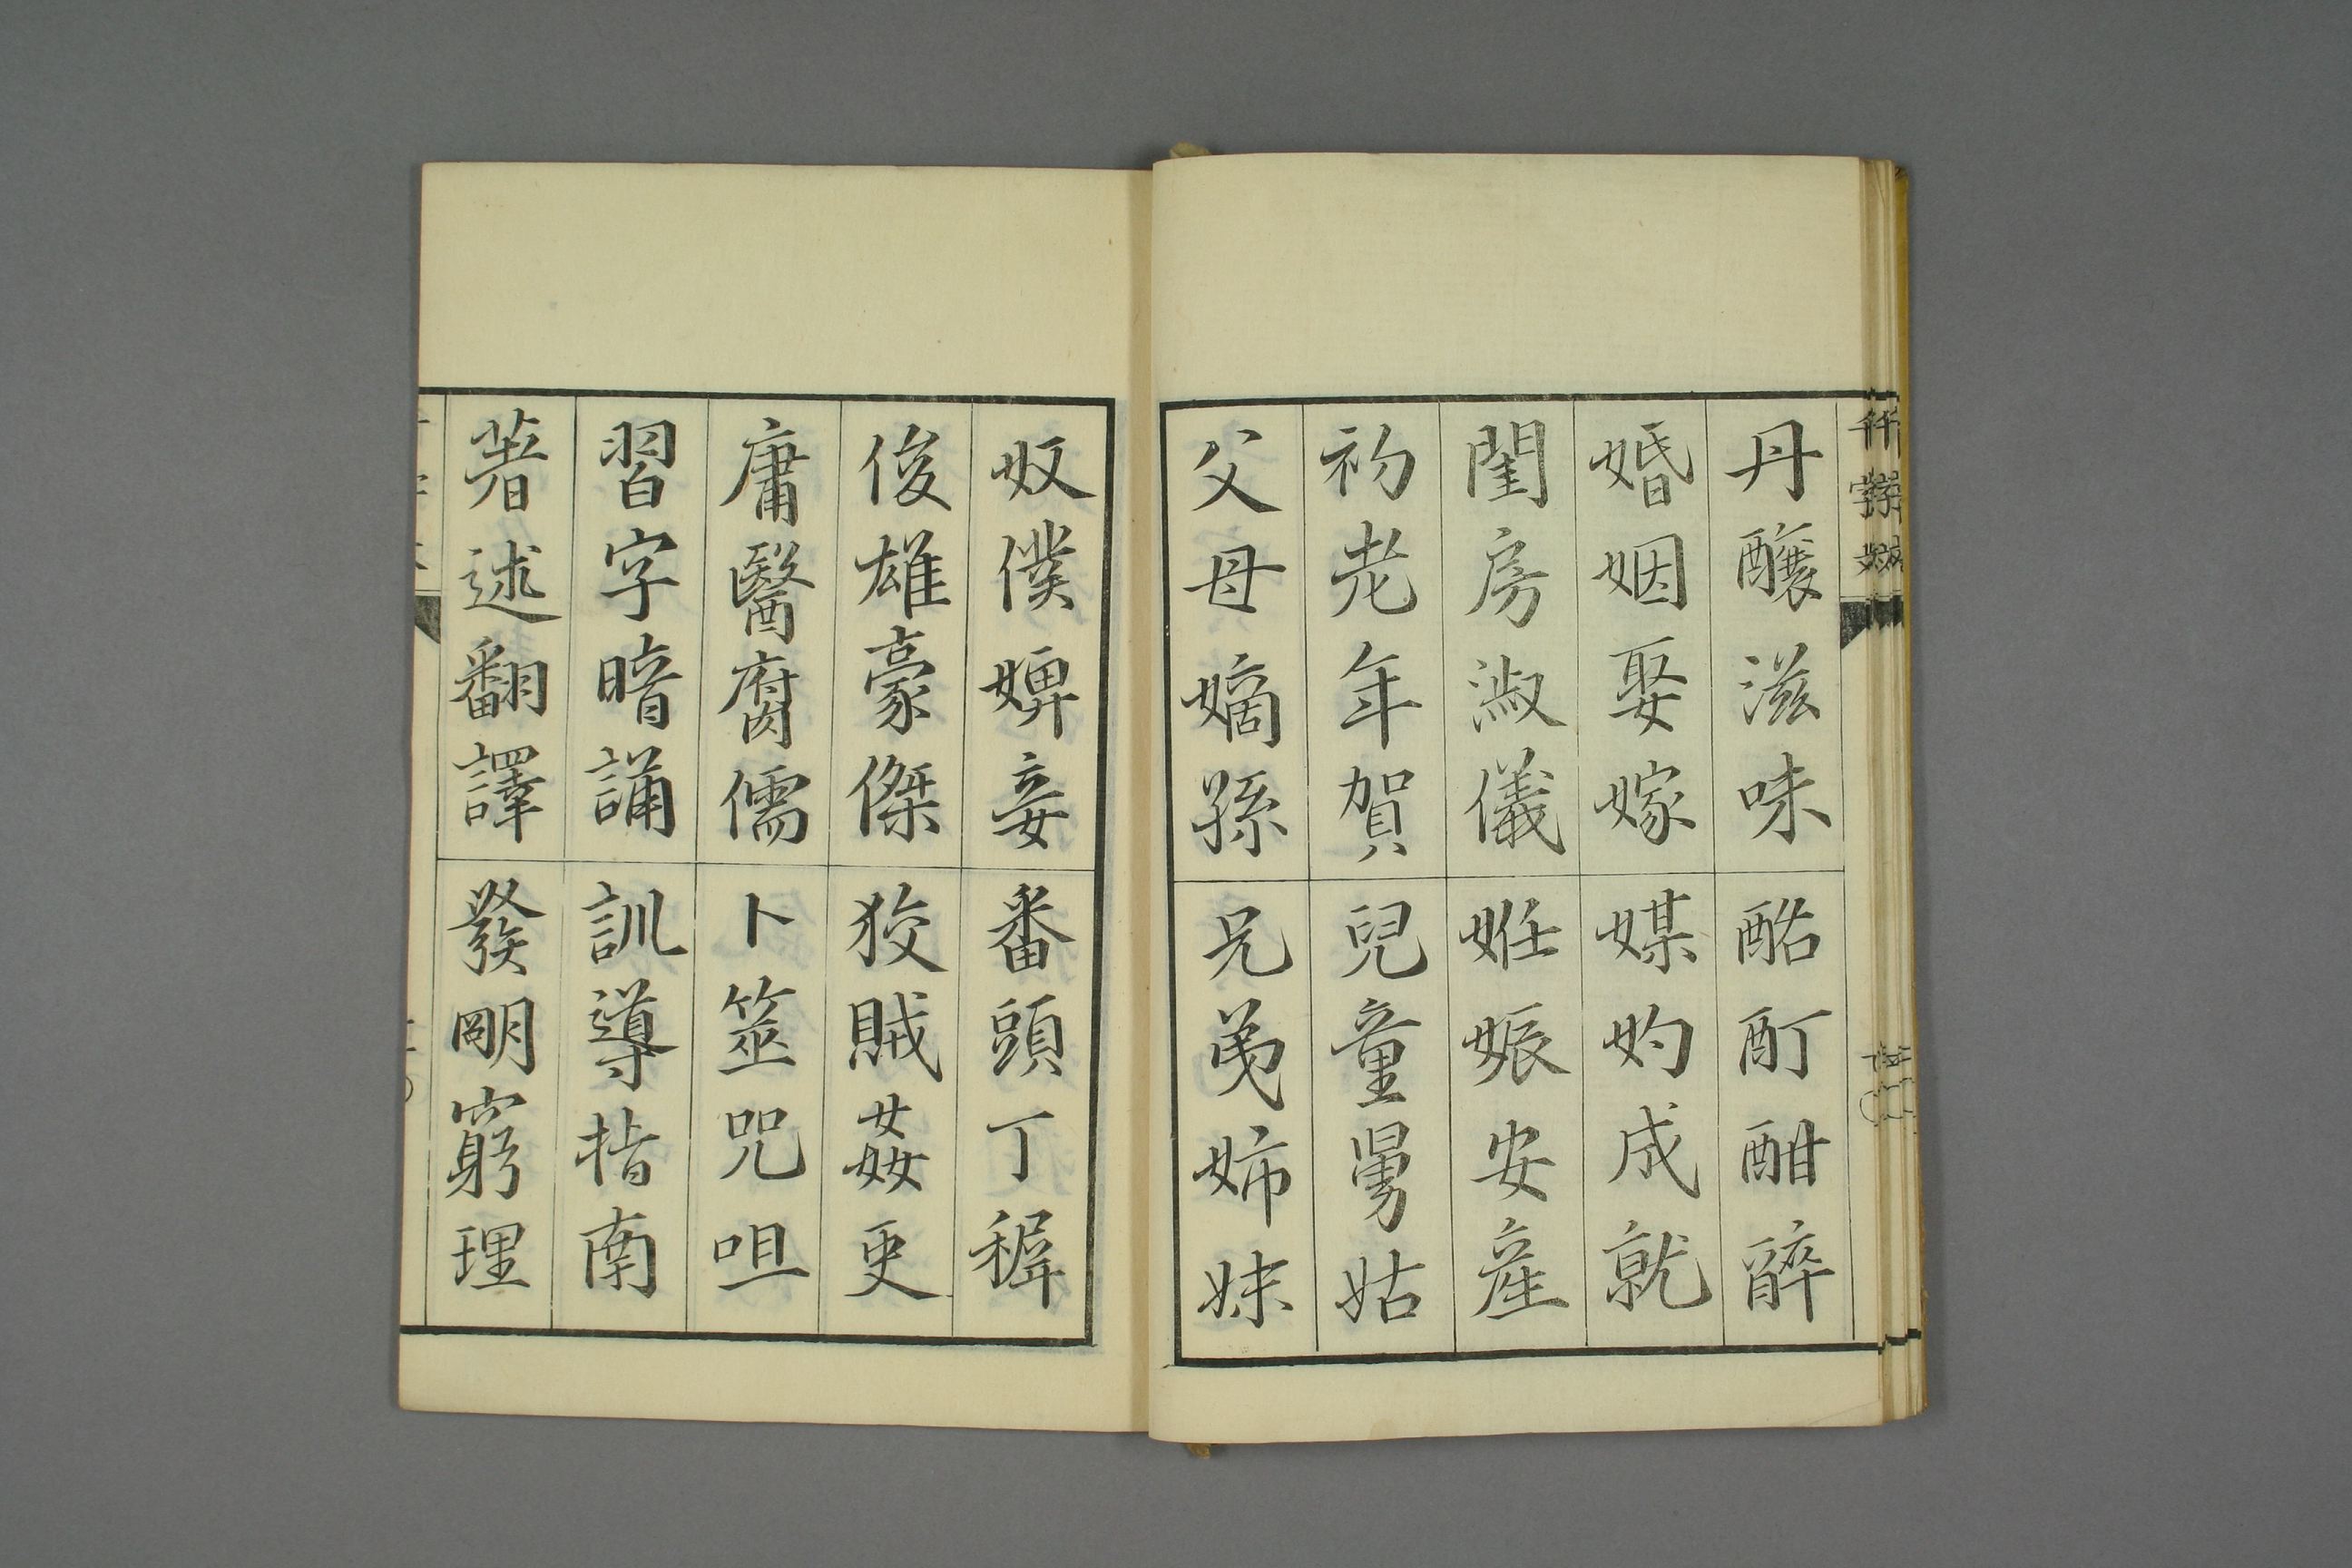 丹釀滋味酩酊酣醉
婚姻娶嫁媒妁成就
閨房淑儀姙娠安產
初老年賀兒童舅姑
父母嫡孫兄弟姉妹
奴僕婢妾番頭丁稺
俊雄豪傑狡賊姦吏
庸醫腐儒卜筮咒咀
習字暗誦訓導指南
著述翻譯發明窮理